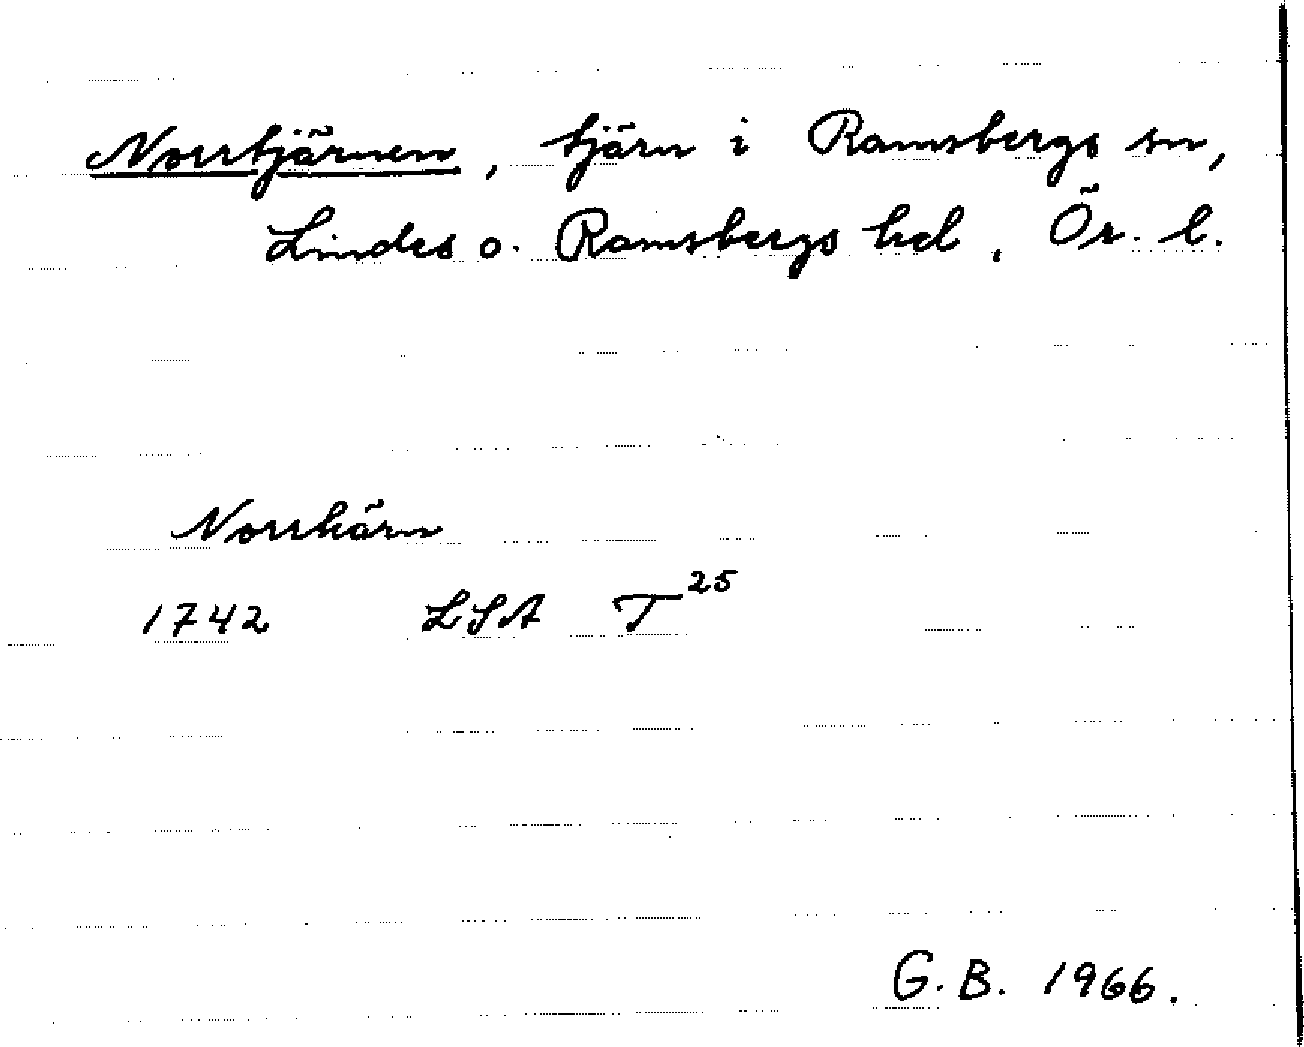 Norrtjärnen, tjärn i Ramsbergs sn,
Lindes o. Ramsbergs hd, Ör. l.
Norrkärn
1742 LSA T25
G. B. 1966.